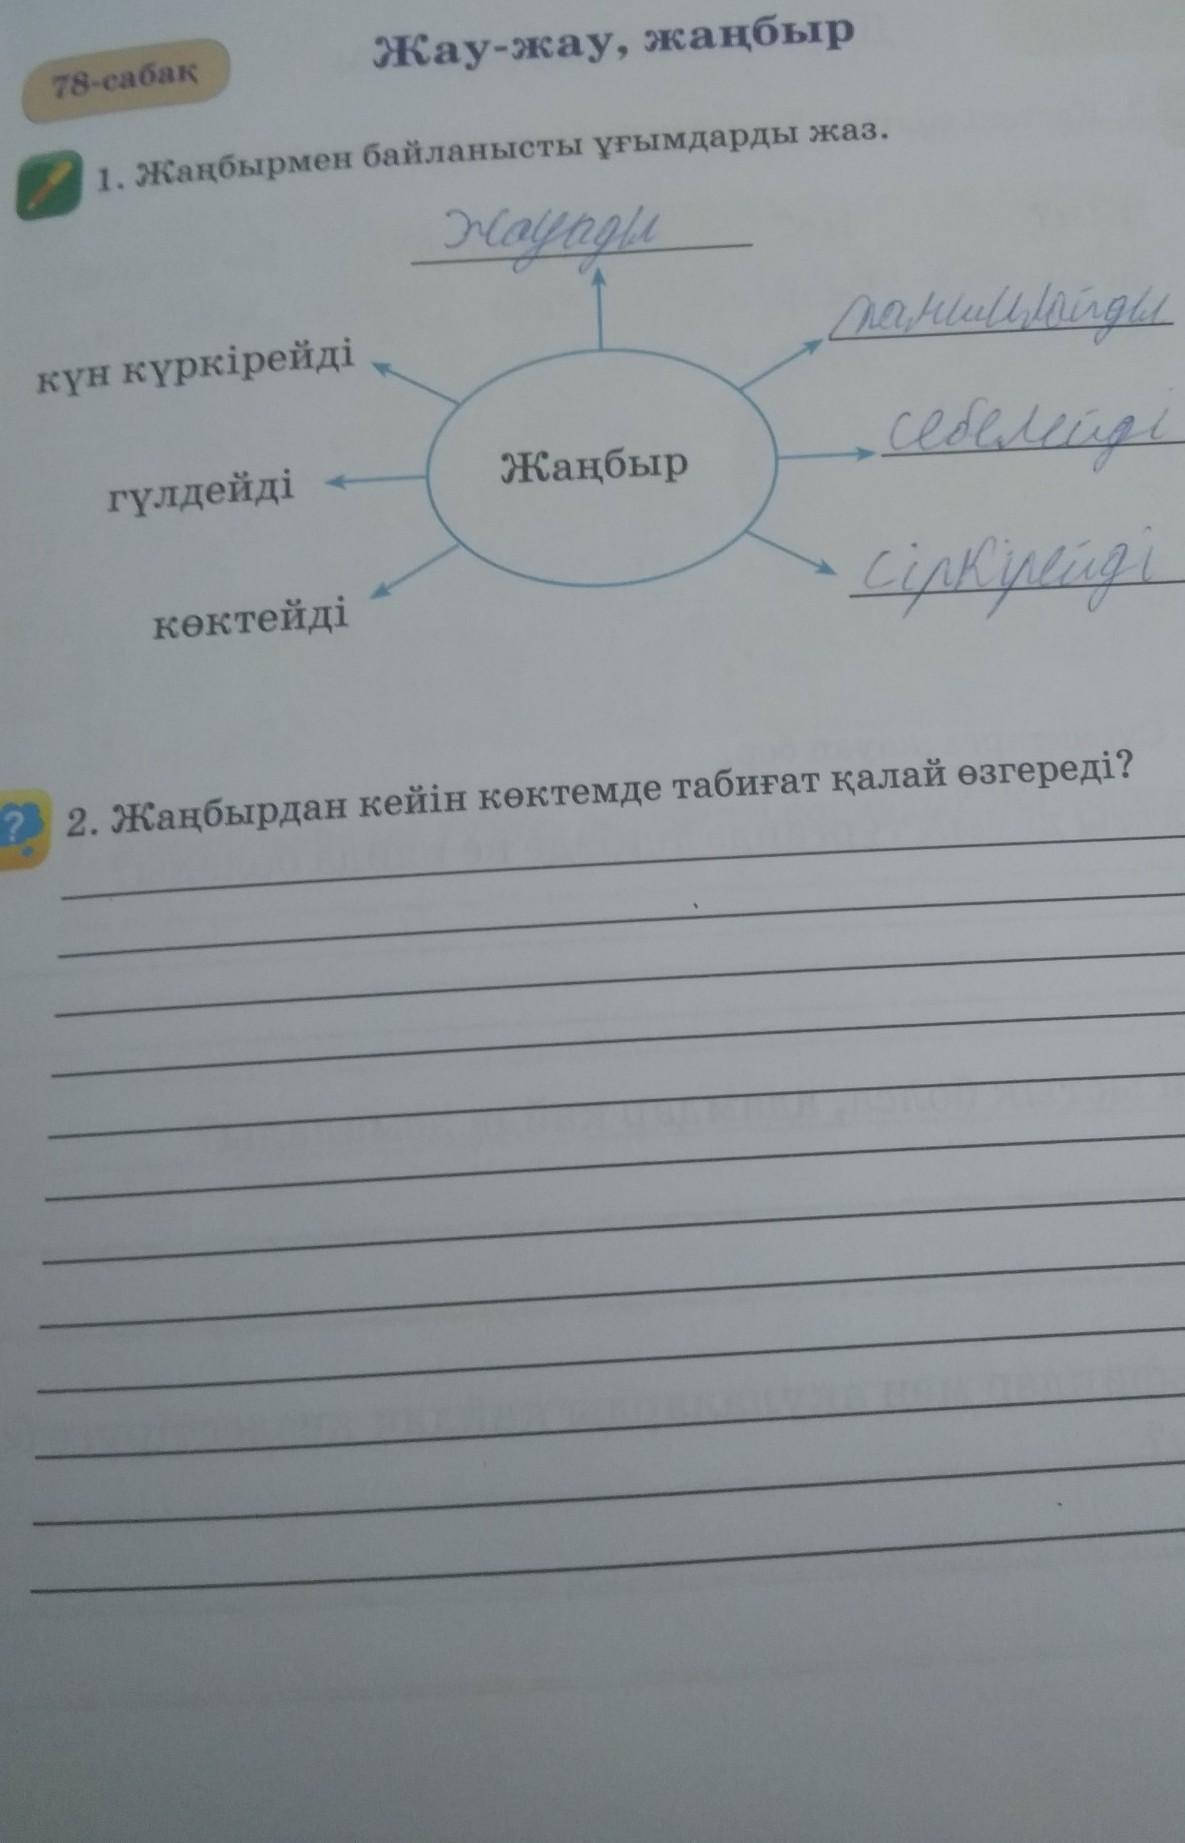 78-сабақ
Жау-жау, жаңбыр
1. Жаңбырмен байланысты ұғымдарды жаз.
жауады
күн күркірейді
себелейді
гүлдейді
Жаңбыр
сіркірейді
көктейді
? 2. Жаңбырдан кейін көктемде табиғат қалай өзгереді?